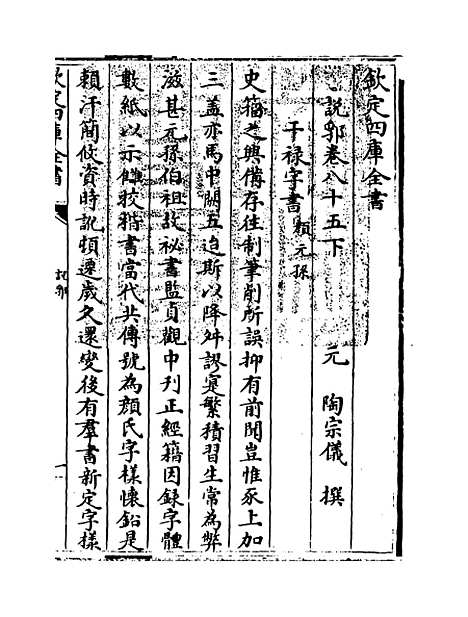 欽定四庫全書
說郛卷八十五下
元 陶宗儀 撰
干禄字書 顔元孫
史籀之興備存往制筆削所誤抑有前聞豈惟豕上加
三盖亦馬中闕五迨斯以降舛謬寔繁積習生常為弊
滋甚元孫伯祖故祕書監貞觀中刋正經籍因録字體
數紙以示讎校楷書當代共傳號為顔氏字様懷鉛是
頼汗簡攸資時訛頓遷歲久還變後有羣書新定字様
欽定四庫全書
說郛
一